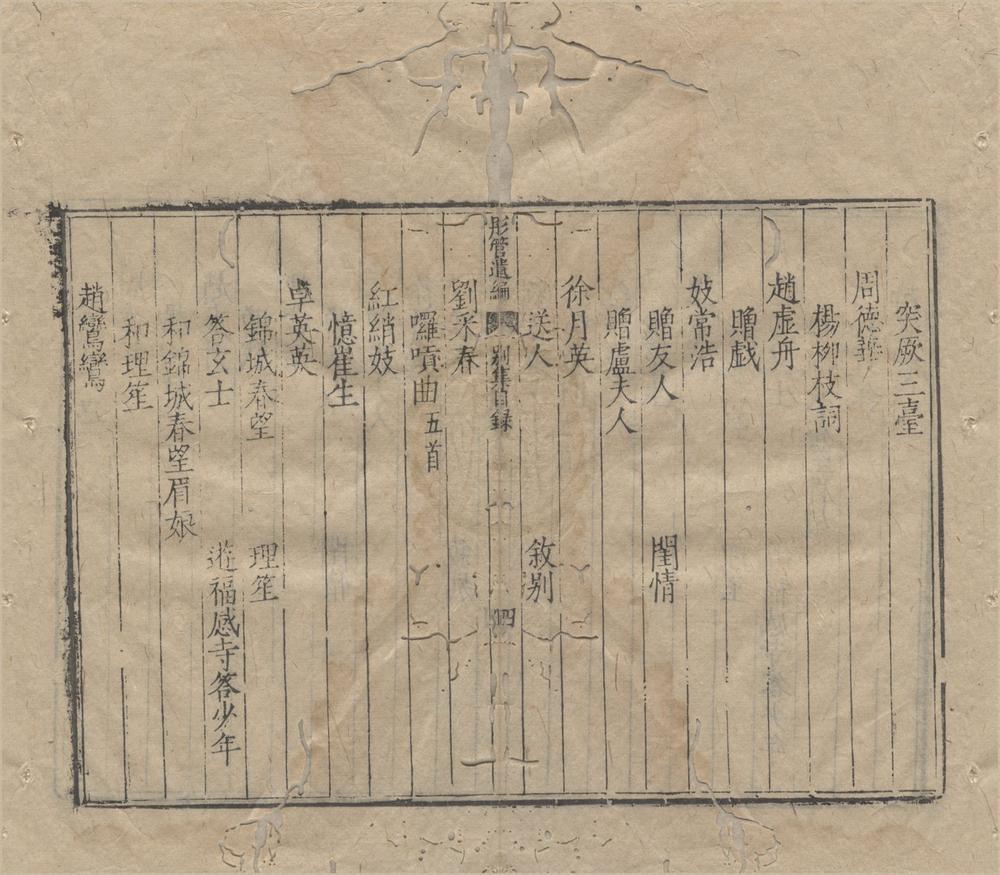 突厥三臺
周德華
楊柳枝詞
趙虛舟
贈戱
妓常浩
贈友人　閨情
贈盧夫人
徐月英
送人　敘别
彤管遺編　别集目録　四
劉采春
囉嗊曲五首
紅綃妓
憶崔生
卓英英
錦城春望　理笙
答玄士　遊福感寺答少年
和錦城春望眉娘
和理笙
趙鸞鸞